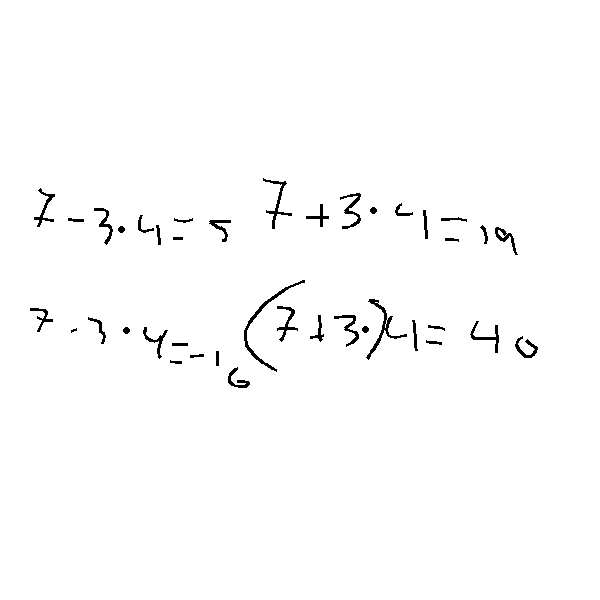 7-3·4=5 7+3·4=19
7-3·4=-16 (7+3·)4=40